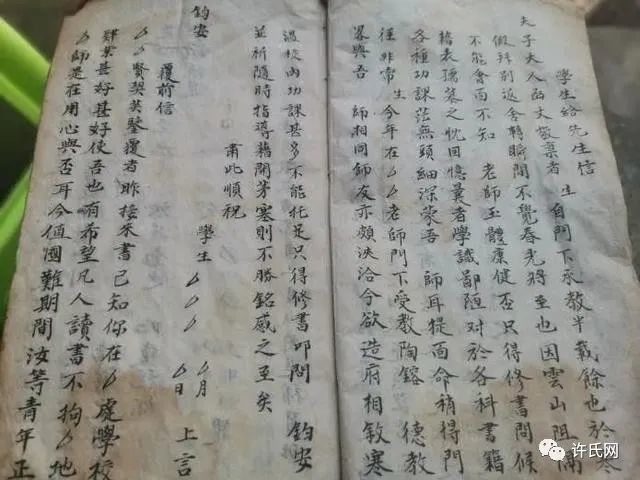 學生給先生信
夫子大人函丈敬稟者 生 自門下承教半載餘也於寒
假拜別返舍轉瞬間不覺春光將至也因雲山阻隔
不能會面不知 老師玉體康健否只得修書問候
藉表孺慕之忱回憶曩者學識鄙陋对於各科書籍
各種功課茫無頭細深蒙吾 師耳提面命稍得門
徑非常 生今年在厶厶老師門下受教陶鎔 德教
渠與吾 師相同師友亦頗浹洽今欲造府相敘寒
温校内功課甚多不能托足只得修書叩問 鈞安
並祈隨時指導藉開茅塞則不勝銘感之至矣
肅此順祝
鈞安 學生 厶厶厶 厶月厶日 上言
覆前信
厶厶賢契英鑒覆者昨接来書已知你在厶處學校
肄業甚好甚好使吾也有希望凡人讀書不拘厶地
厶師是在用心與否耳今值國難期間汝等青年正
许氏网